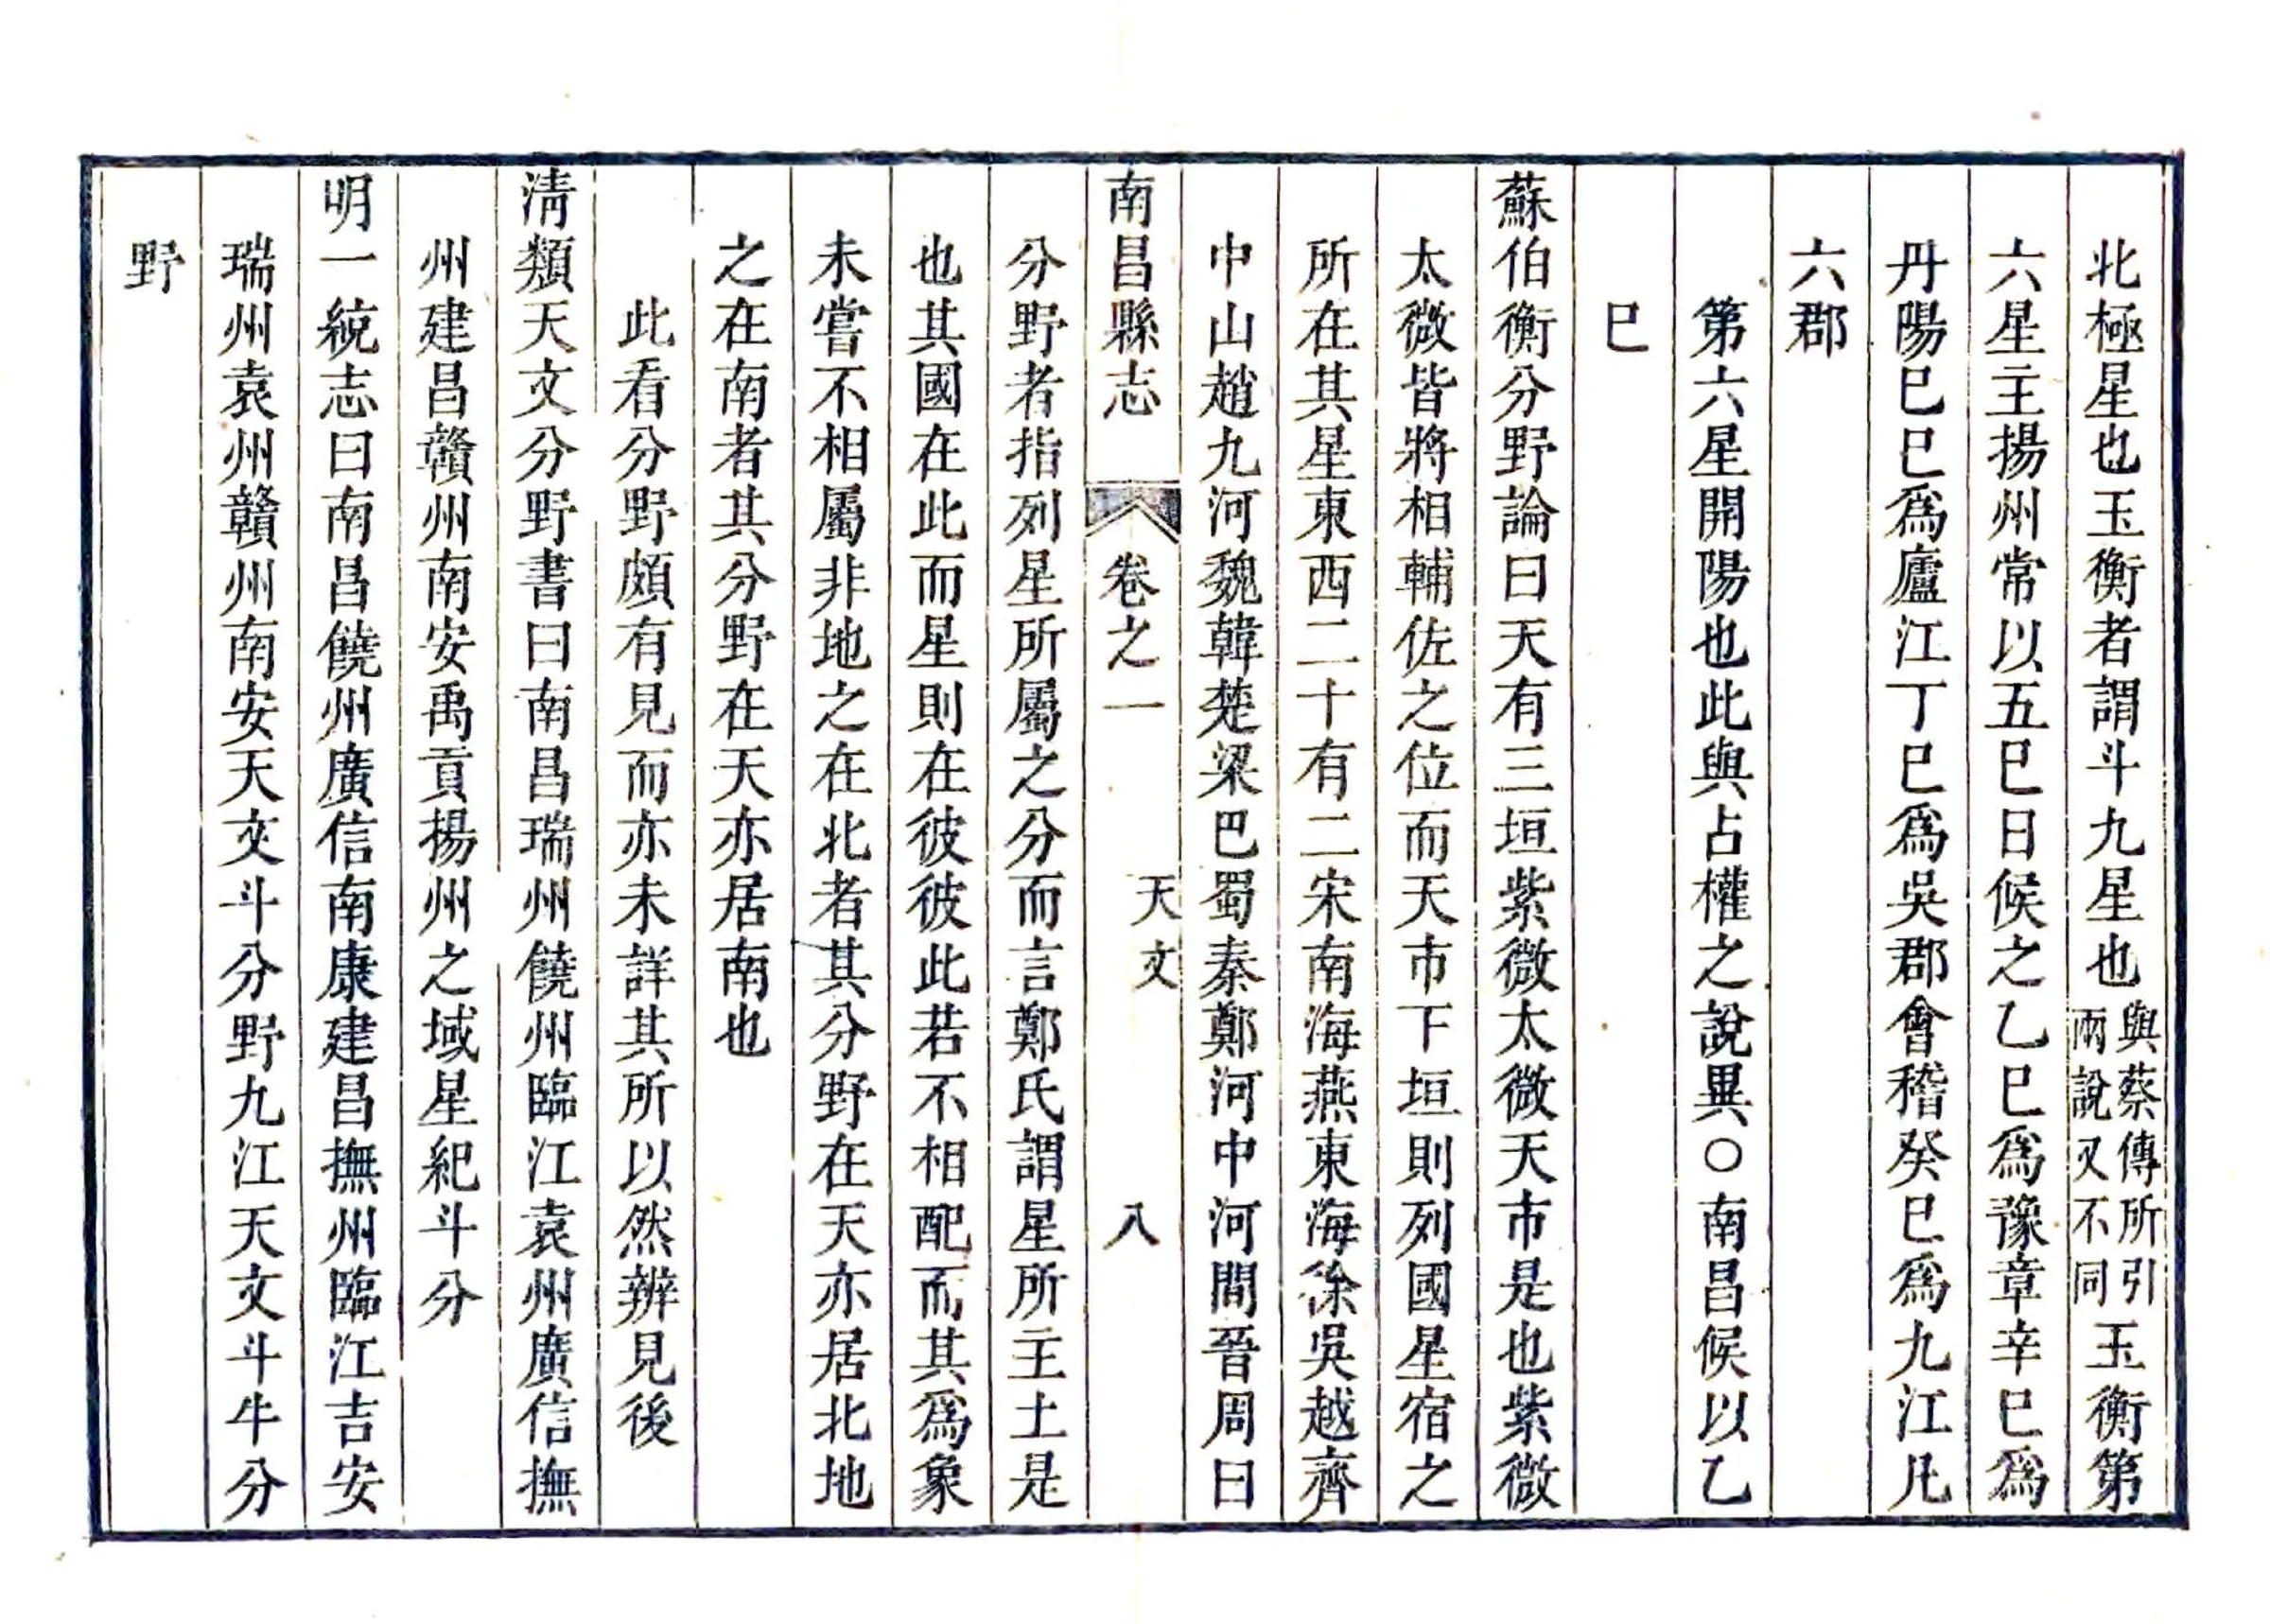 北極星也玉衡者謂斗九星也與蔡傳所引兩說又不同玉衡第
六星主揚州常以五巳日候之乙巳爲豫章辛巳爲
丹陽巳巳爲廬江丁巳爲吳郡會稽癸巳爲九江凡
六郡
第六星開陽也此與占權之說異○南昌候以乙
巳
蘇伯衡分野論曰天有三垣紫微太微天市是也紫微
太微皆將相輔佐之位而天市下垣則列國星宿之
所在其星東西二十有二宋南海燕東海徐吳越齊
中山趙九河魏韓楚梁巴蜀秦鄭河中河間晉周曰
南昌縣志 卷之一 天文 八
分野者指列星所屬之分而言鄭氏謂星所主土是
也其國在此而星則在彼彼此若不相配而其爲象
未嘗不相屬非地之在北者其分野在天亦居北地
之在南者其分野在天亦居南也
此看分野頗有見而亦未詳其所以然辨見後
淸類天文分野書曰南昌瑞州饒州臨江袁州廣信撫
州建昌贛州南安禹貢揚州之域星紀斗分
明一統志曰南昌饒州廣信南康建昌撫州臨江吉安
瑞州袁州贛州南安天文斗分野九江天文斗牛分
野